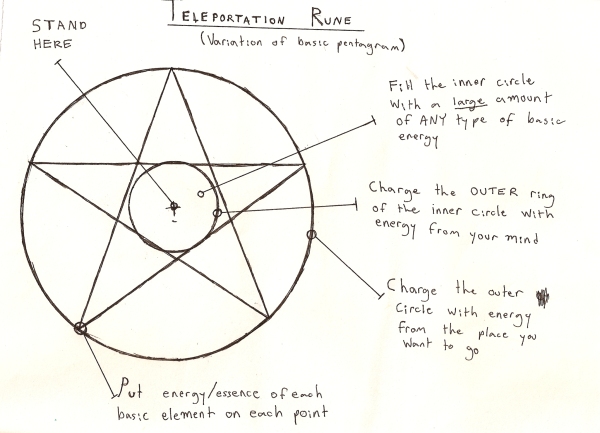 TELEPORTATION RUNE
(Variation of basic pentagram)
STAND
HERE
Fill the inner circle
with a large amount
of ANY type of basic
energy
Charge the OUTER ring
of the inner circle with
energy from your mind
Charge the outer
circle with energy
from the place you
want to go
Put energy/essence of each
basic element on each point